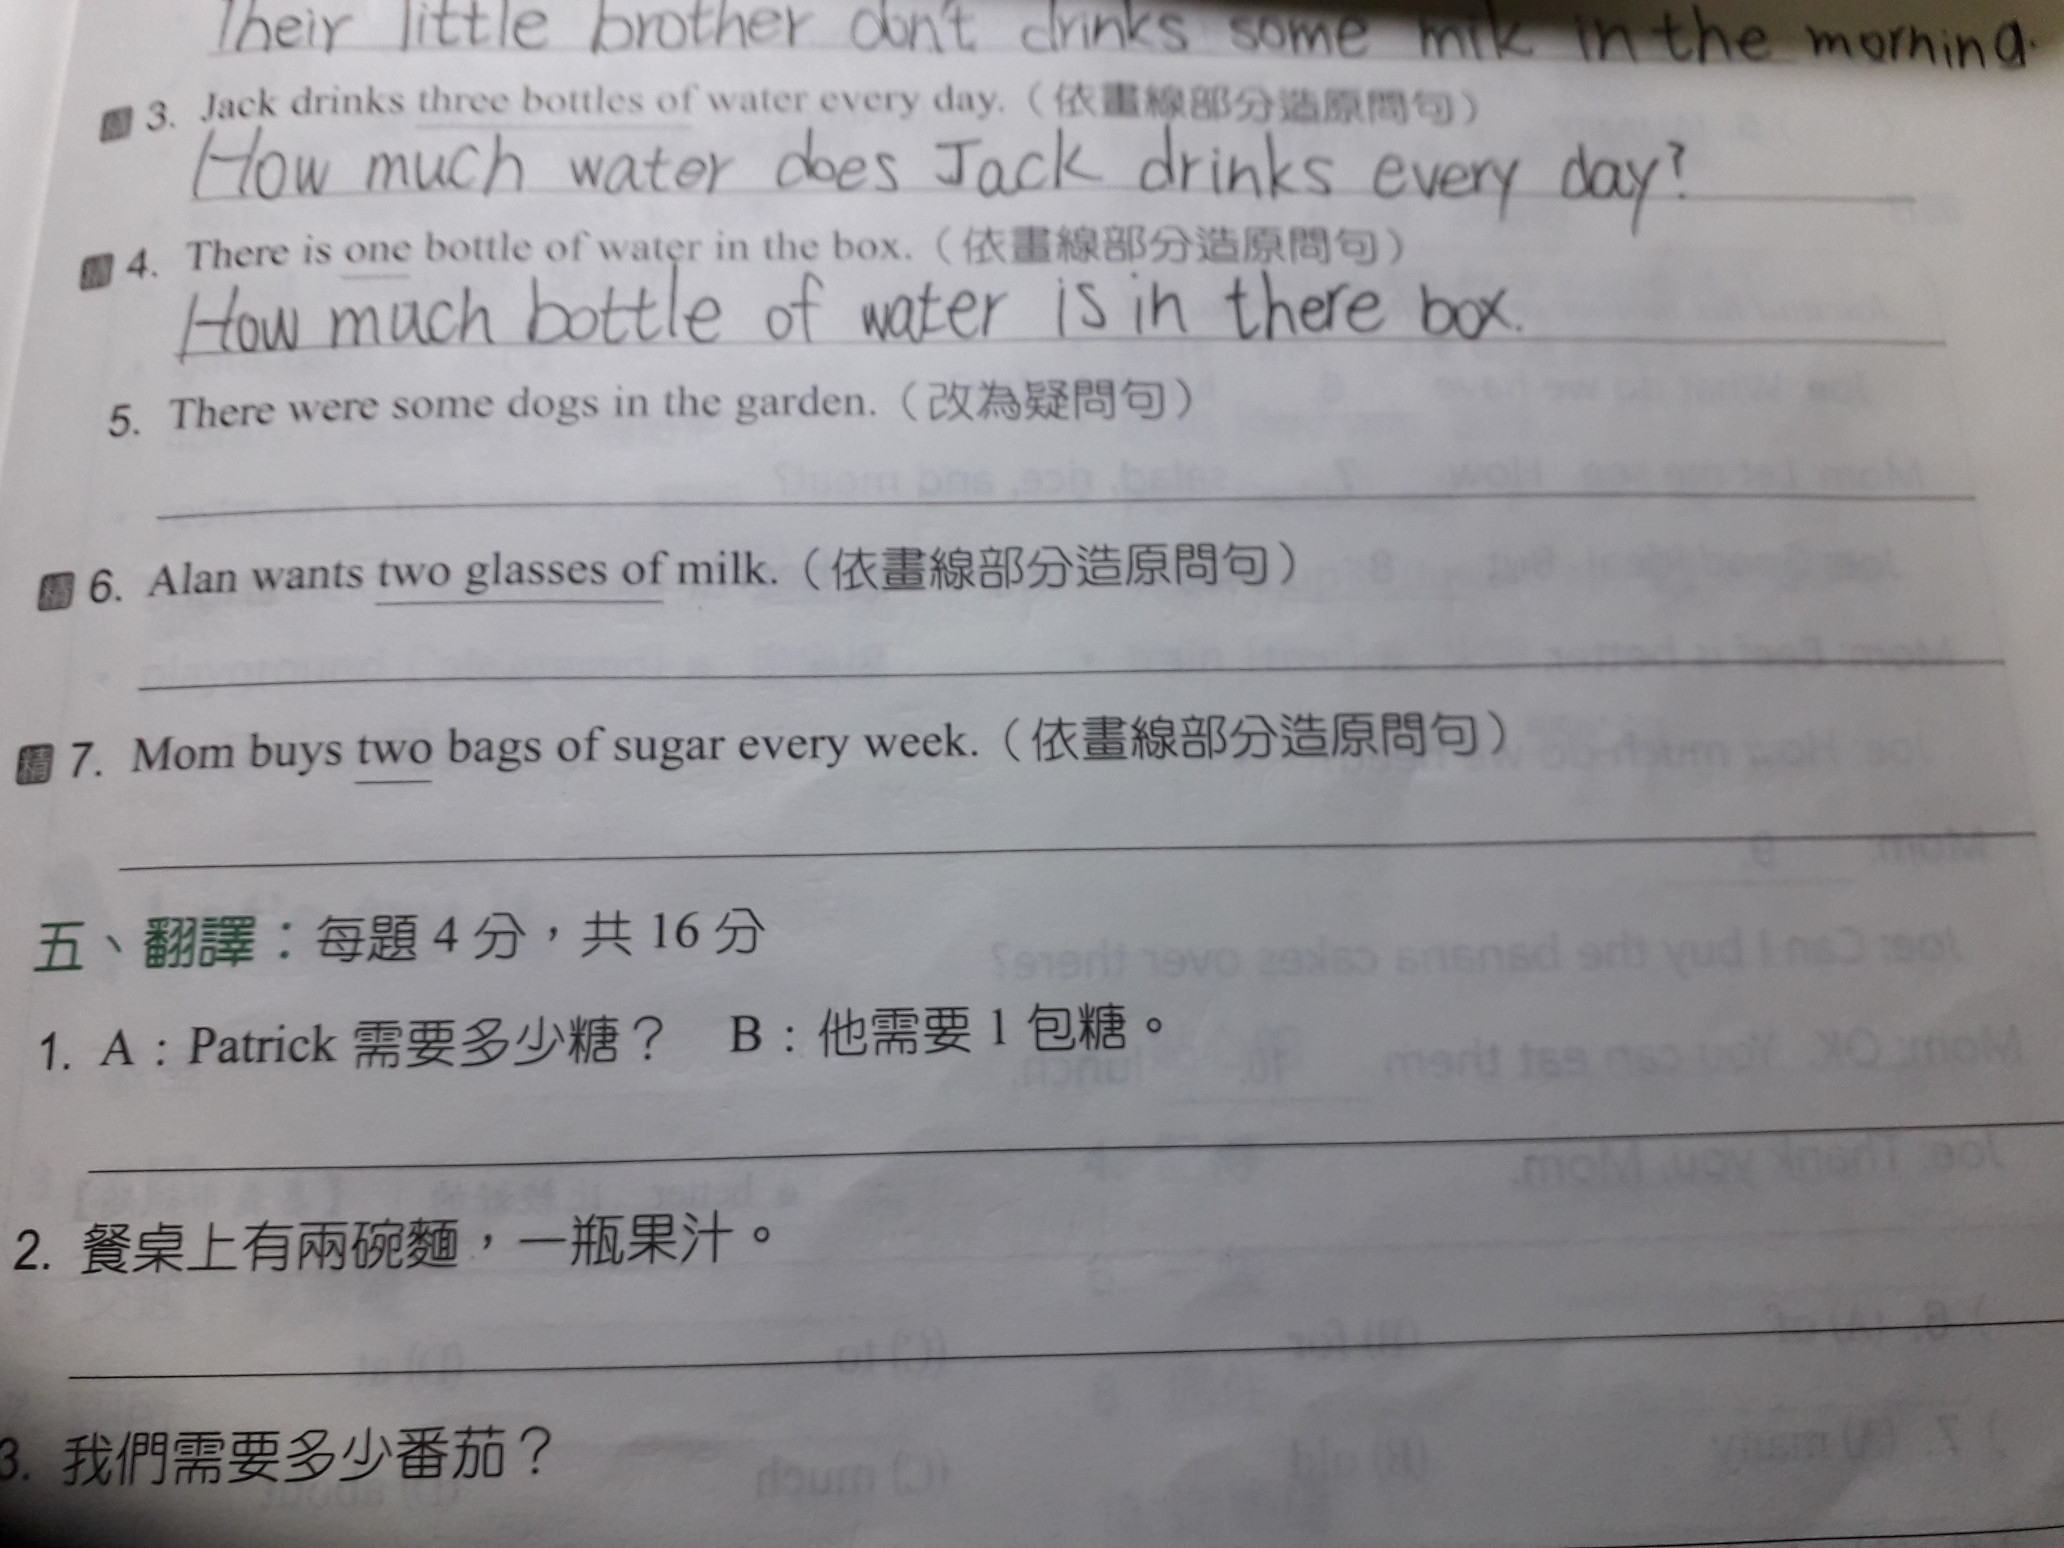 Their little brother don't drinks some mik in the morning.
3. Jack drinks three bottles of water every day.（依畫線部分造原問句）
How much water does Jack drinks every day?
4. There is one bottle of water in the box.（依畫線部分造原問句）
How much bottle of water is in there box.
5. There were some dogs in the garden.（改為疑問句）
精 6. Alan wants two glasses of milk.（依畫線部分造原問句）
精 7. Mom buys two bags of sugar every week.（依畫線部分造原問句）
五、翻譯：每題 4 分，共 16 分
1. A：Patrick 需要多少糖？ B：他需要 1 包糖。
2. 餐桌上有兩碗麵，一瓶果汁。
3. 我們需要多少番茄？